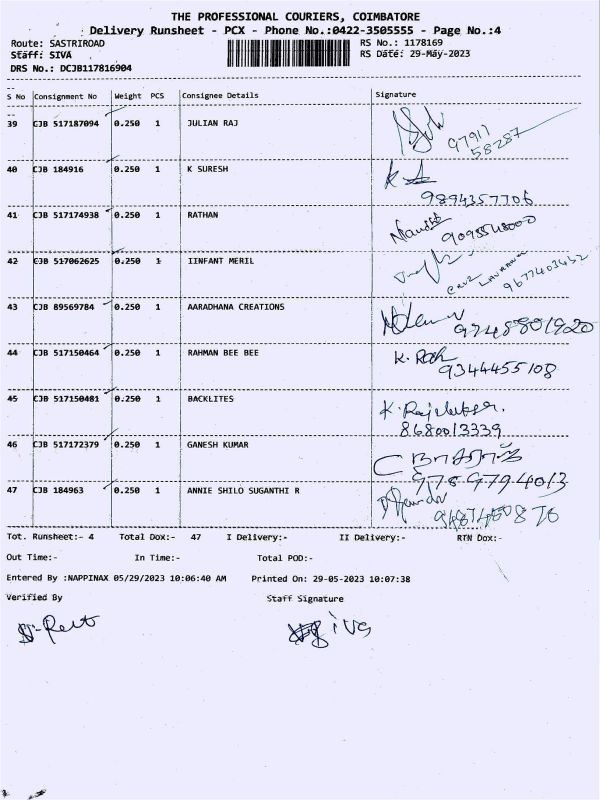 THE PROFESSIONAL COURIERS, COIMBATORE
Delivery Runsheet - PCX - Phone No.:0422-3505555 - Page No.:4
Route: SASTRIROAD RS No.: 1178169
Staff: SIVA RS Date: 29-May-2023
DRS No.: DCJB117816904
S No Consignment No Weight PCS Consignee Details Signature
39 CJB 517187094 0.250 1 JULIAN RAJ
97911
58287
40 CJB 184916 0.250 1 K SURESH
9894357706
41 CJB 517174938 0.250 1 RATHAN
42 CJB 517062625 0.250 1 IINFANT MERIL
9677403452
43 CJB 89569784 0.250 1 AARADHANA CREATIONS
9748801920
44 CJB 517150464 0.250 1 RAHMAN BEE BEE
9344455108
45 CJB 517150481 0.250 1 BACKLITES
8680013339
46 CJB 517172379 0.250 1 GANESH KUMAR
9789794013
47 CJB 184963 0.250 1 ANNIE SHILO SUGANTHI R
Tot. Runsheet:- 4 Total Dox:- 47 I Delivery:- II Delivery:- RTN Dox:-
Out Time:- In Time:- Total POD:-
Entered By :NAPPINAX 05/29/2023 10:06:40 AM Printed On: 29-05-2023 10:07:38
Verified By Staff Signature